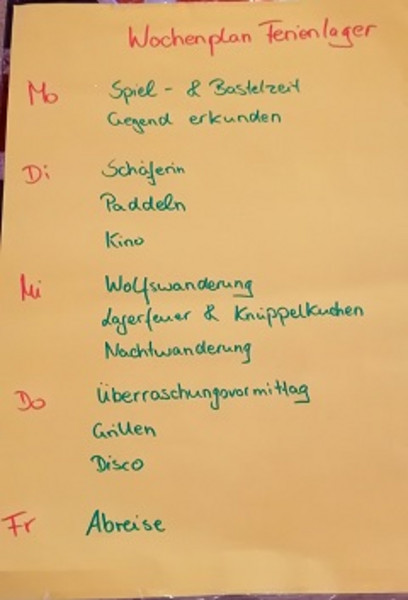 Wochenplan Ferienlager
Mo Spiel- & Bastelzeit
Gegend erkunden
Di Schäferin
Paddeln
Kino
Mi Wolfswanderung
Lagerfeuer & Knüppelkuchen
Nachtwanderung
Do Überraschungsvormittag
Grillen
Disco
Fr Abreise